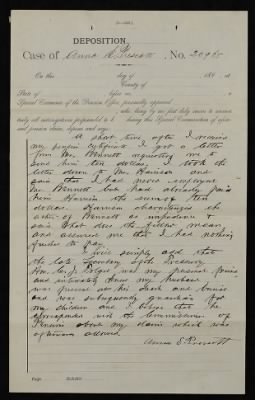 DEPOSITION.
Case of Anna E. Prescott, No. 20968
On this day of , 188 , at
County of
State of , before me, a
Special Examiner of the Pension Office, personally appeared
, who, being by me first duly sworn to answer
truly all interrogatories propounded to h during this Special Examination of afore-
said pension claim, deposes and says:
A short time after I received
my pension certificate I got a letter
from Mr. Bennett requesting me to
send him ten dollars. I took the
letter down to Mr. Harrison and
said that I had never employed
Mr. Bennett but had already paid
him Harrison the sum of ten
dollars. Harrison characterized the
action of Bennett as impudence &
said What does the fellow mean,
and assured me that I had nothing
further to pay.
I will simply add that
the late Secretary of the Treasury
Hon. C. J. Folger was my personal friend
and intimately knew my husband
was present at his death and burial
and was subsequently guardian for
my children and I believe that he
corresponded with the Commissioner of
Pensions about my claim which was
afterwards allowed.
Anna E. Prescott
Page